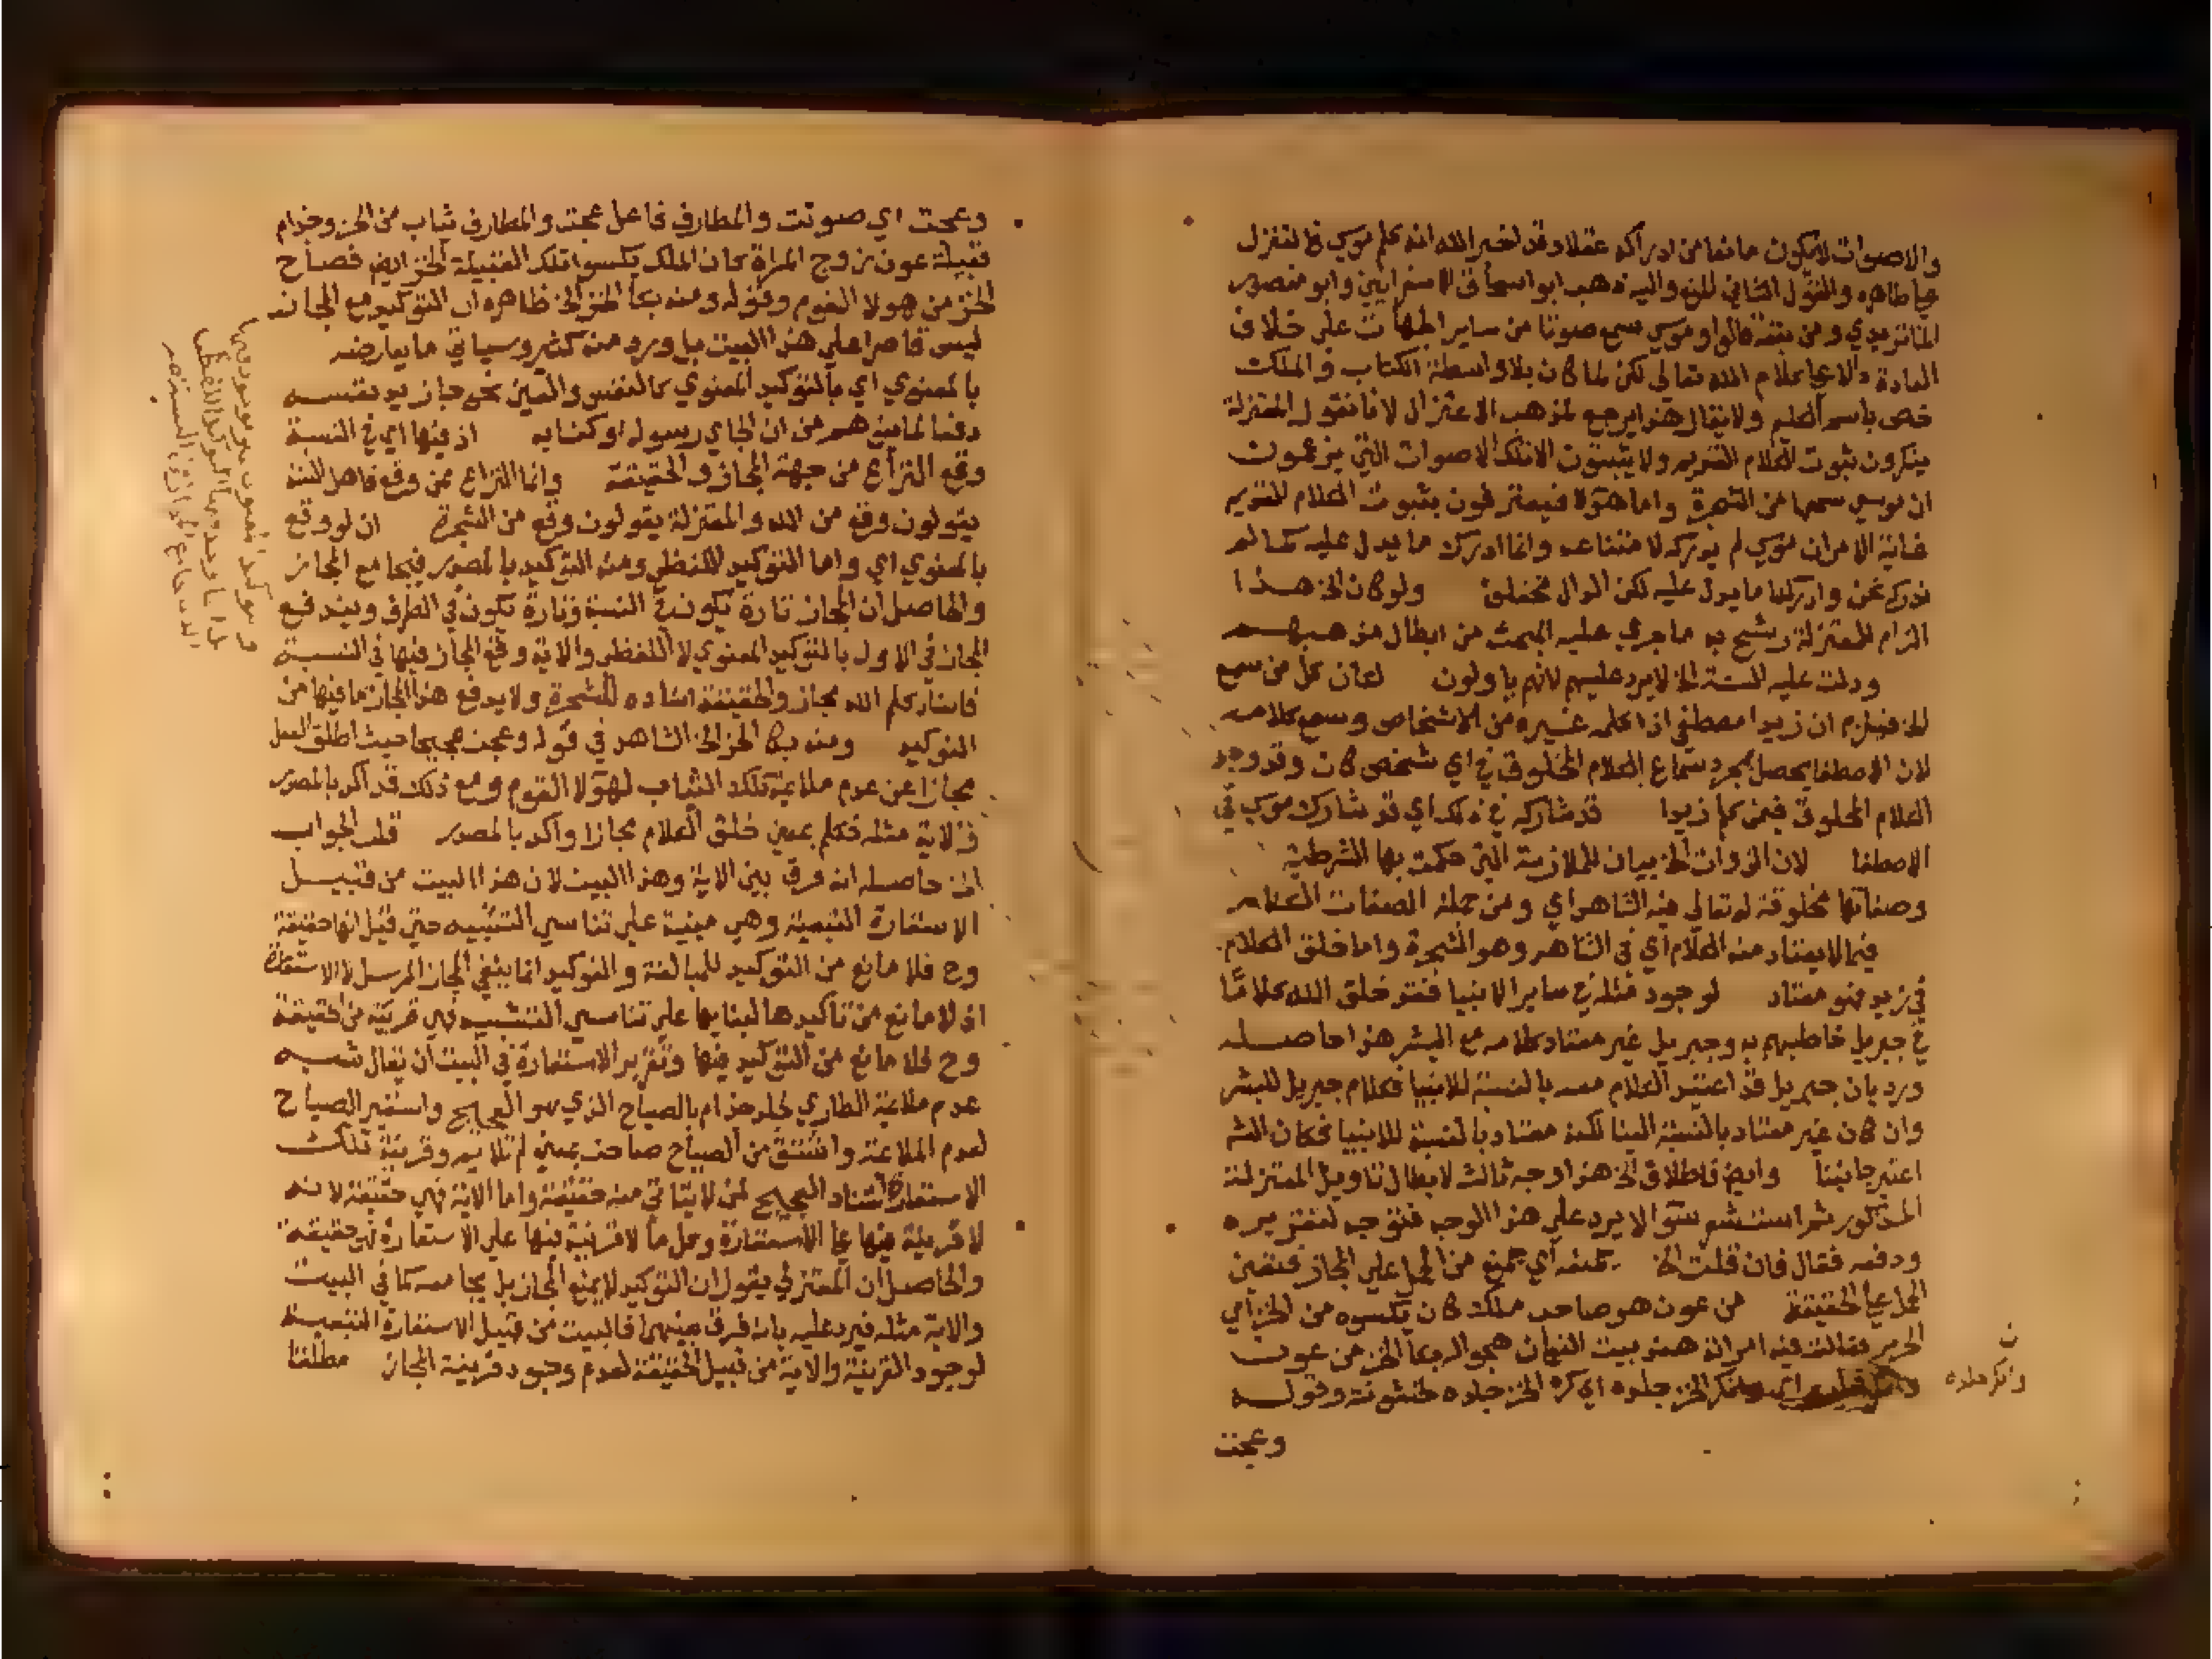 والاصوات لا يكون مانعا من ادراكه عقلا وقد اخبر الله انه كلم موسي فالتنزل
علي ظاهره والقول الثاني للمع واليه ذهب ابو اسحاق الاسفرايني وابو منصور
الماتريدي ومن تبعه قالوا وموسي سمع صوتا من ساير الجهات علي خلاف
العادة دالا علي كلام الله تعالي لكن لما كان بلا واسطة الكتاب والملك
خص باسم الكليم ولا يقال هذا يرجع لمذهب الاعتزال لانا نقول المعتزلة
ينكرون ثبوت الكلام القديم ولا يثبتون الا تلك الاصوات التي يزعمون
ان موسي سمعها من الشجرة واما هولا فيعترفون بثبوت الكلام القديم
غاية الامر ان موسي لم يدركه لامتناعه وانما ادرك ما يدل عليه كما لم
ندركه نحن وادركنا ما يدل عليه لكن الدال مختلف ولو كان الخ هذا
الزام للمعتزلة رشح به ما جري عليه المبحث من ابطال مذهبهم
ودلت عليه السنة الخ لا يرد عليهم لانهم ياولون لكان كل من سمع
الخ فيلزم ان زيدا مصطفي اذا كلمه غيره من الاشخاص وسمع كلامه
لان الاصطفا يحصل بمجرد سماع الكلام المخلوق في اي شخص كان وقد وجد
الكلام المخلوق فيمن كلم زيدا قد شاركه في ذلك اي قد شارك موسي في
الاصطفا لان الذوات الخ بيان للملازمة التي حكمت بها الشرطية
وصفاتها مخلوقة له تعالي فيه الشاهد اي ومن جملة الصفات الكلام
فيما لا يعتاد منه الكلام اي في الشاهد وهو الشجرة واما خلق الكلام
في زيد فهو معتاد لوجود مثله في ساير الانبيا فقد خلق الله كلاما
في جبريل خاطبهم به وجبريل غير معتاد كلامه مع البشر هذا حاصله
ورد بان جبريل قد اعتيد الكلام معه بالنسبة للانبيا فكلام جبريل للبشر
وان كان غير معتاد بالنسبة الينا لكنه معتاد بالنسبة للانبيا فكان الشه
اعتبر جانبنا وايضا فاطلاق الخ هذا وجه ثالث لابطال تاويل المعتزلة
المذكور ثم استشعر سوالا يرد علي هذا الوجه فتوجه لتقريره
ودفعه فقال فان قلت الخ يمنعه اي يمنع من الحمل علي المجاز فتعين
الحمل علي الحقيقة من عوف هو صاحب ملك كان يكسوه من الخز اي
الحرير فقالت فيه امراة هند بيت النعمان هجوا له بكا الخز من عوف
وانكر الخز جلده اي كره الخز جلده لخشونته وقوله
وعجت
ن
وانكر جلده
وعجت اي صوتت والمطارف فاعل عجت والمطارف ثياب من الخز وجذام
قبيلة عوف زوج المراة كان الملك يكسوا تلك القبيلة الخز ايضا فصاح
الخز من هولا القوم وقوله ومنه بكا الخز الخ ظاهره ان التوكيد مع المجاز
ليس قاصرا علي هذا البيت بل ورد منه كثير وسياتي ما يعارضه
بالمعنوي اي بالتوكيد المعنوي كالنفس والعين نحو جا زيد نفسه
دفعا لما يتوهم من ان الجاي رسوله او كتابه اذ فيها اي في النسبة
وقع النزاع من جهة المجاز والحقيقة وانما النزاع عن وقع فاهل السنة
يقولون وقع من الله والمعتزلة يقولون وقع من الشجرة ان لو وقع
بالمعنوي اي واما التوكيد اللفظي ومنه التوكيد بالمصدر فيجامع المجاز
والحاصل ان المجاز تارة يكون في النسبة وتارة يكون في الطرف ويندفع
المجاز في الاول بالتوكيد المعنوي لا اللفظي والاية وقع المجاز فيها في النسبة
فاسناد كلم الله مجاز والحقيقة اسناده للشجرة ولا يدفع هذا المجاز ما فيها من
التوكيد ومنه بكا الخز الخ الشاهد في قوله وعجت عجيجا حيث اطلق العجل
مجازا عن عدم ملايمة تلك الثياب لهولا القوم ومع ذلك قد اكد بالمصدر
فالاية مثله فكلم بمعني خلق الكلام مجازا واكد بالمصدر قلت الجواب
الخ حاصله انه فرق بين الاية وهذا البيت لان هذا البيت من قبيل
الاستعارة التبعية وهي مبنية علي تناسي التشبيه حتي قيل انها حقيقة
وح فلا مانع من التوكيد للمبالغة والتوكيد انما ينفي المجاز المرسل لا الاستعارة
اذ لا مانع من تاكيدها لبنايها علي تناسي التشبيه فهي قريبة من الحقيقة
وح فلا مانع من التوكيد فيها وتقرير الاستعارة في البيت ان يقال شبه
عدم ملايمة المطارف لجلد جذام بالصياح الذي هو العجيج واستعير الصياح
لعدم الملايمة واشتق من الصياح صاحت بمعني لم تلايم وقرينة تلك
الاستعارة اسناد العجيج لمن لا يتاتي منه حقيقة واما الاية فهي حقيقة لانه
لا قرينة فيها علي الاستعارة وكل ما لا قرينة فيها علي الاستعارة فهو حقيقة
والحاصل ان المعتزلي يقول ان التوكيد لا يمنع المجاز بل يجامعه كما في البيت
والاية مثله فيرد عليه بانه فرق بينهما فالبيت من قبيل الاستعارة التبعية
لوجود القرينة والاية من قبيل الحقيقة لعدم وجود قرينة المجاز مطلقا